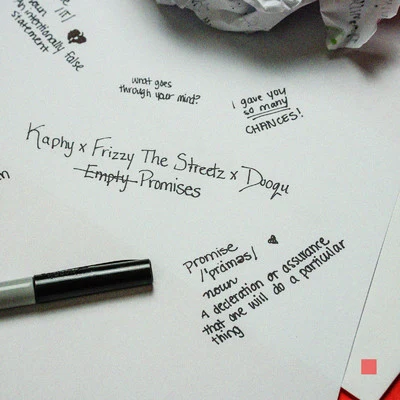 noun /ɪ/
An intentionally false
statement
what goes
through your mind?
i gave you
so many
CHANCES!
Kaphy x Frizzy The Streetz x Doogu
Empty Promises
Promise
/'präməs/
noun
A decleration or assurance
that one will do a particular
thing